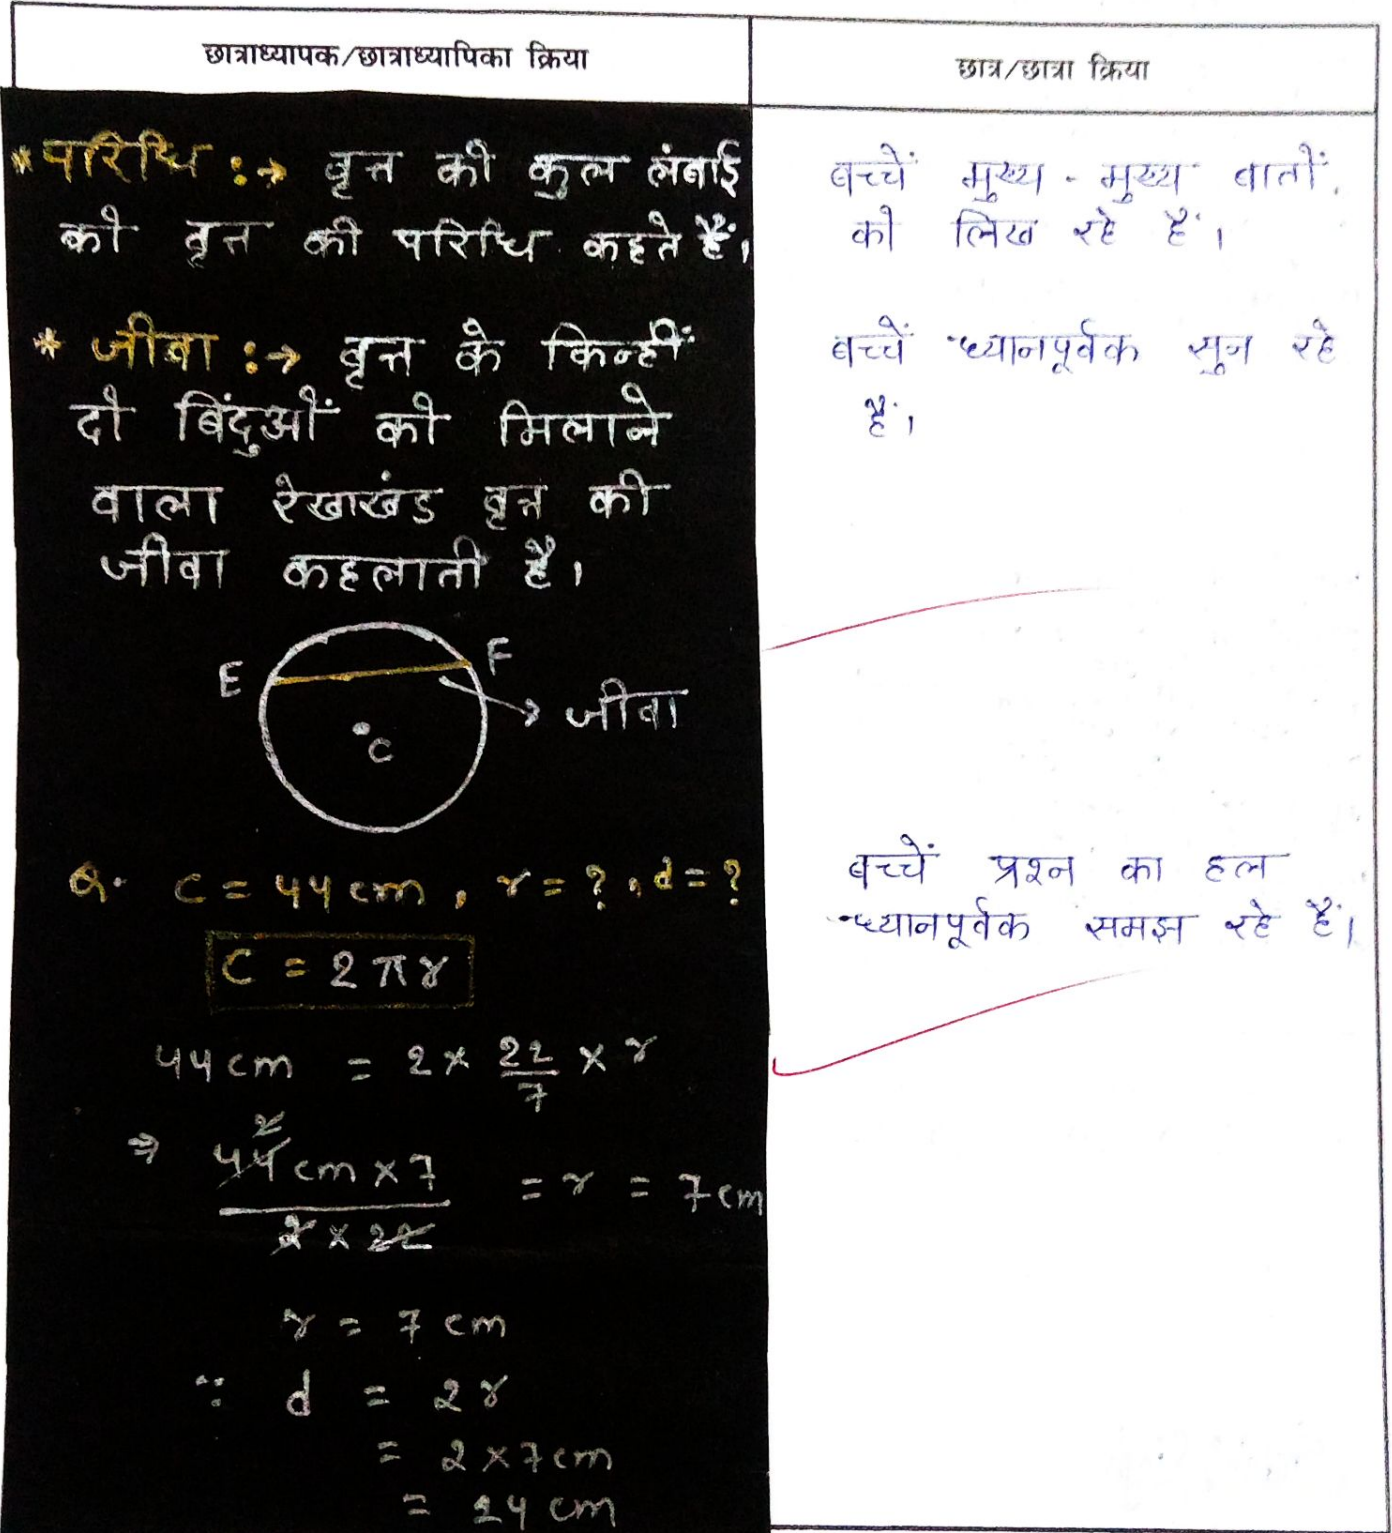 छात्राध्यापक/छात्राध्यापिका क्रिया
छात्र/छात्रा क्रिया
* परिधि :→ वृत्त की कुल लंबाई
को वृत्त की परिधि कहते हैं।
* जीवा :→ वृत्त के किन्हीं
दो बिंदुओं को मिलाने
वाला रेखाखंड वृत्त की
जीवा कहलाती है।
E
F
जीवा
C
Q. C = 44 cm, r = ?, d = ?
C = 2πr
44 cm = 2 × 22/7 × r
⇒ 44 cm × 7 / 2 × 22 = r = 7 cm
2
r = 7 cm
∵ d = 2r
= 2 × 7 cm
= 14 cm
बच्चें मुख्य - मुख्य बातों
को लिख रहे हैं।
बच्चें ध्यानपूर्वक सुन रहे
हैं।
बच्चें प्रश्न का हल
ध्यानपूर्वक समझ रहे हैं।